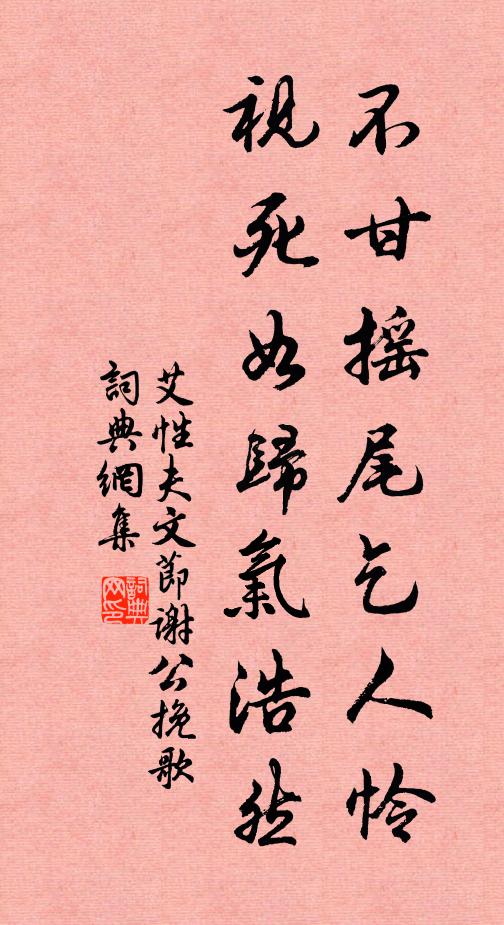 不甘摇尾乞人怜
視死如歸氣浩然
艾性夫文節谢公挽歌
詞典網集
詞典网印